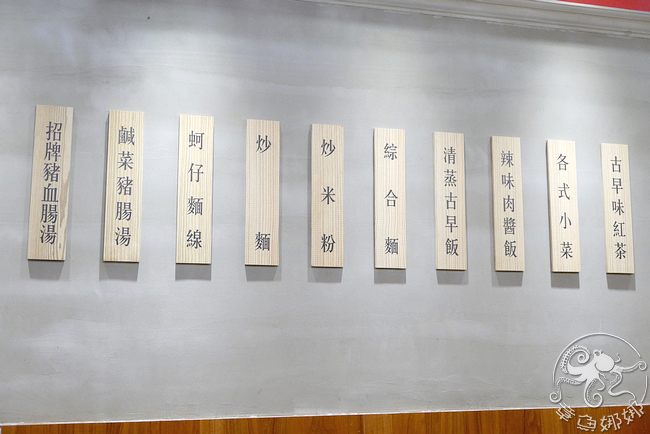 招牌豬血腸湯
鹹菜豬腸湯
蚵仔麵線
炒麵
炒米粉
綜合麵
清蒸古早飯
辣味肉醬飯
各式小菜
古早味紅茶
章魚娜娜